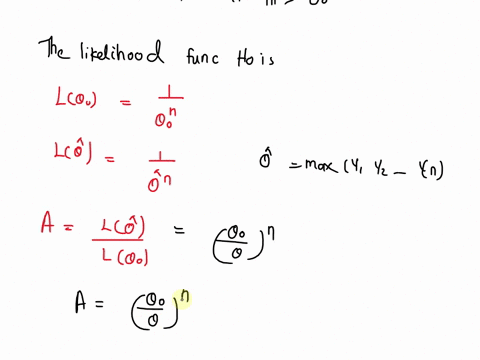 The likelihood func Ho is
L(θ₀) = 1/θ₀ⁿ
L(θ̂) = 1/θ̂ⁿ
θ̂ = max (Y₁ Y₂ – Y(n)
A = L(θ̂)/L(θ₀) = (θ₀/θ)ⁿ
A = (θ₀/θ)ⁿ